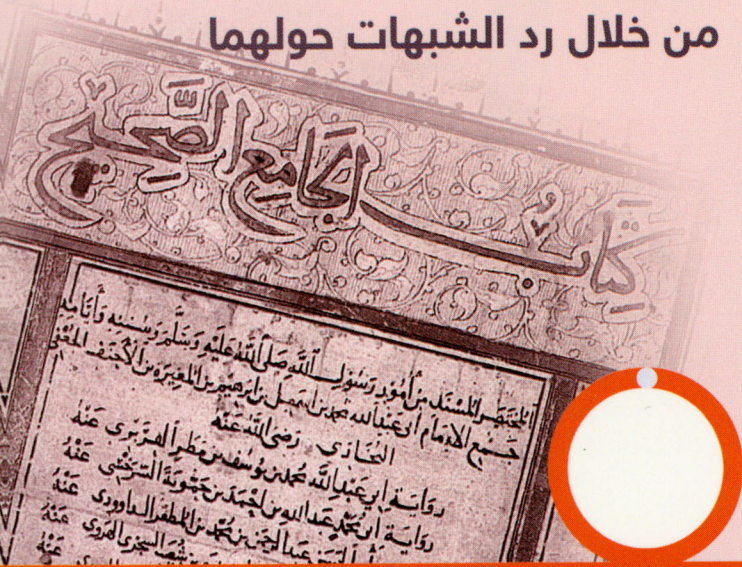 من خلال رد الشبهات حولهما
كِتَابُ الجَامِعِ الصَّحِيحِ
المختصر المسند من أمور رسول الله صلى الله عليه وسلم وسننه وأيامه
جمع الإمام أبي عبد الله محمد بن إسمعيل بن إبراهيم بن المغيرة بن الأحنف
البخاري رضي الله عنه
رواية أبي عبد الله محمد بن يوسف بن مطر الفربري عنه
رواية أبي محمد عبد الله بن أحمد بن حمويه السرخسي عنه
عبد الرحمن بن محمد بن المظفر الداوودي عنه
بن شعيب السجزي الهروي عنه